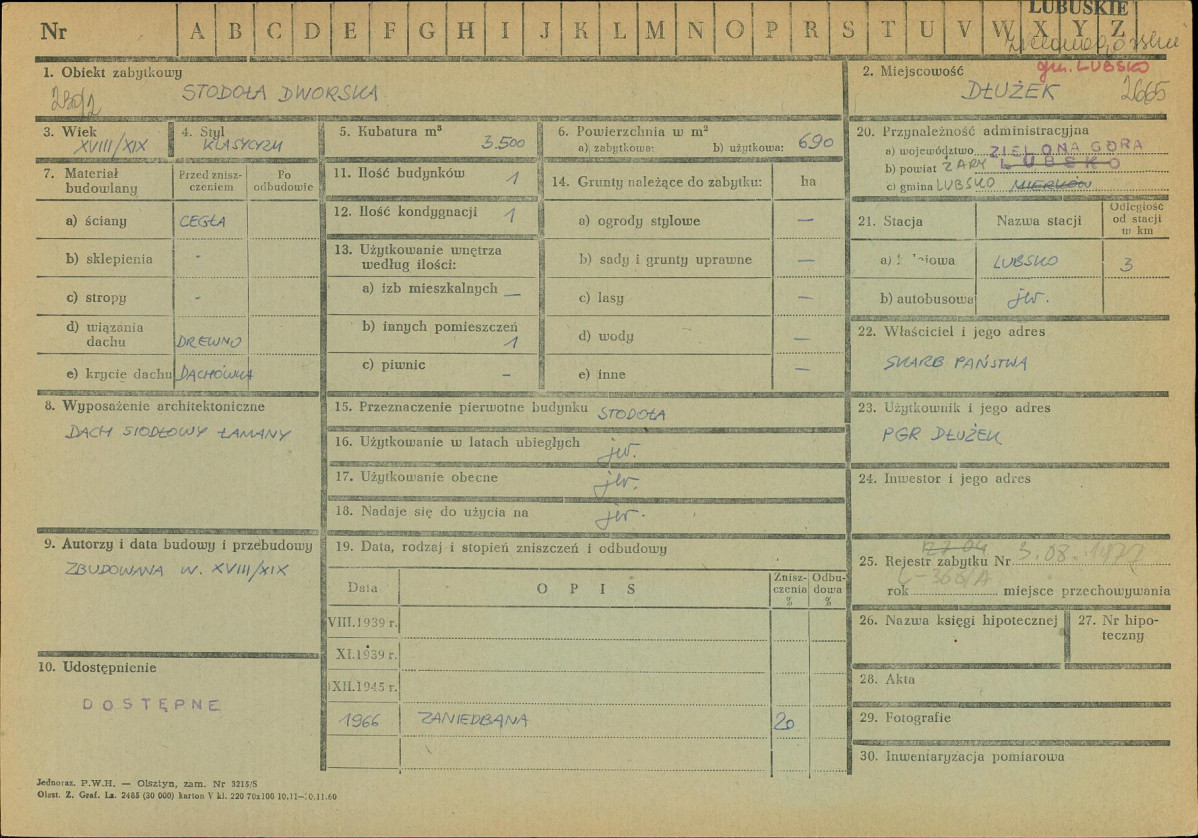 LUBUSKIE
Nr A B C D E F G H I J K L M N O P R S T U V W X Y Z
gm. LUBSKO
1. Obiekt zabytkowy
STODOŁA DWORSKA
2. Miejscowość
DŁUŻEK 2665
3. Wiek
XVIII/XIX
4. Styl
KLASYCYZM
5. Kubatura m³
3.500
6. Powierzchnia w m²
a) zabytkowa: b) użytkowa: 690
7. Materiał budowlany
Przed zniszczeniem
Po odbudowie
a) ściany CEGŁA
b) sklepienia -
c) stropy -
d) wiązania dachu DREWNO
e) krycie dachu DACHÓWKA
8. Wyposażenie architektoniczne
DACH SIODŁOWY ŁAMANY
9. Autorzy i data budowy i przebudowy
ZBUDOWANA W. XVIII/XIX
10. Udostępnienie
DOSTĘPNE
11. Ilość budynków 1
12. Ilość kondygnacji 1
13. Użytkowanie wnętrza
według ilości:
a) izb mieszkalnych —
b) innych pomieszczeń 1
c) piwnic -
14. Grunty należące do zabytku: ha
a) ogrody stylowe —
b) sady i grunty uprawne —
c) lasy -
d) wody —
e) inne —
15. Przeznaczenie pierwotne budynku STODOŁA
16. Użytkowanie w latach ubiegłych jw.
17. Użytkowanie obecne jw.
18. Nadaje się do użycia na jw.
19. Data, rodzaj i stopień zniszczeń i odbudowy
Data OPIS Zniszczenia % Odbudowa %
VIII.1939 r.
XI.1939 r.
XII.1945 r.
1966 ZANIEDBANA 20
20. Przynależność administracyjna
a) województwo ZIELONA GÓRA
b) powiat ŻARY LUBSKO
c) gmina LUBSKO MIERKÓW
21. Stacja Nazwa stacji Odległość od stacji w km
LUBSKO 3
b) autobusowa jw.
22. Właściciel i jego adres
SKARB PAŃSTWA
23. Użytkownik i jego adres
PGR DŁUŻEK
24. Inwestor i jego adres
25. Rejestr zabytku Nr
rok miejsce przechowywania
26. Nazwa księgi hipotecznej
27. Nr hipoteczny
28. Akta
29. Fotografie
30. Inwentaryzacja pomiarowa
Jednoraz. P.W.H. — Olsztyn, zam. Nr 3215/S
Olszt. Z. Graf. Lz. 2485 (30 000) karton V kl. 220 70x100 10.11—10.11.60